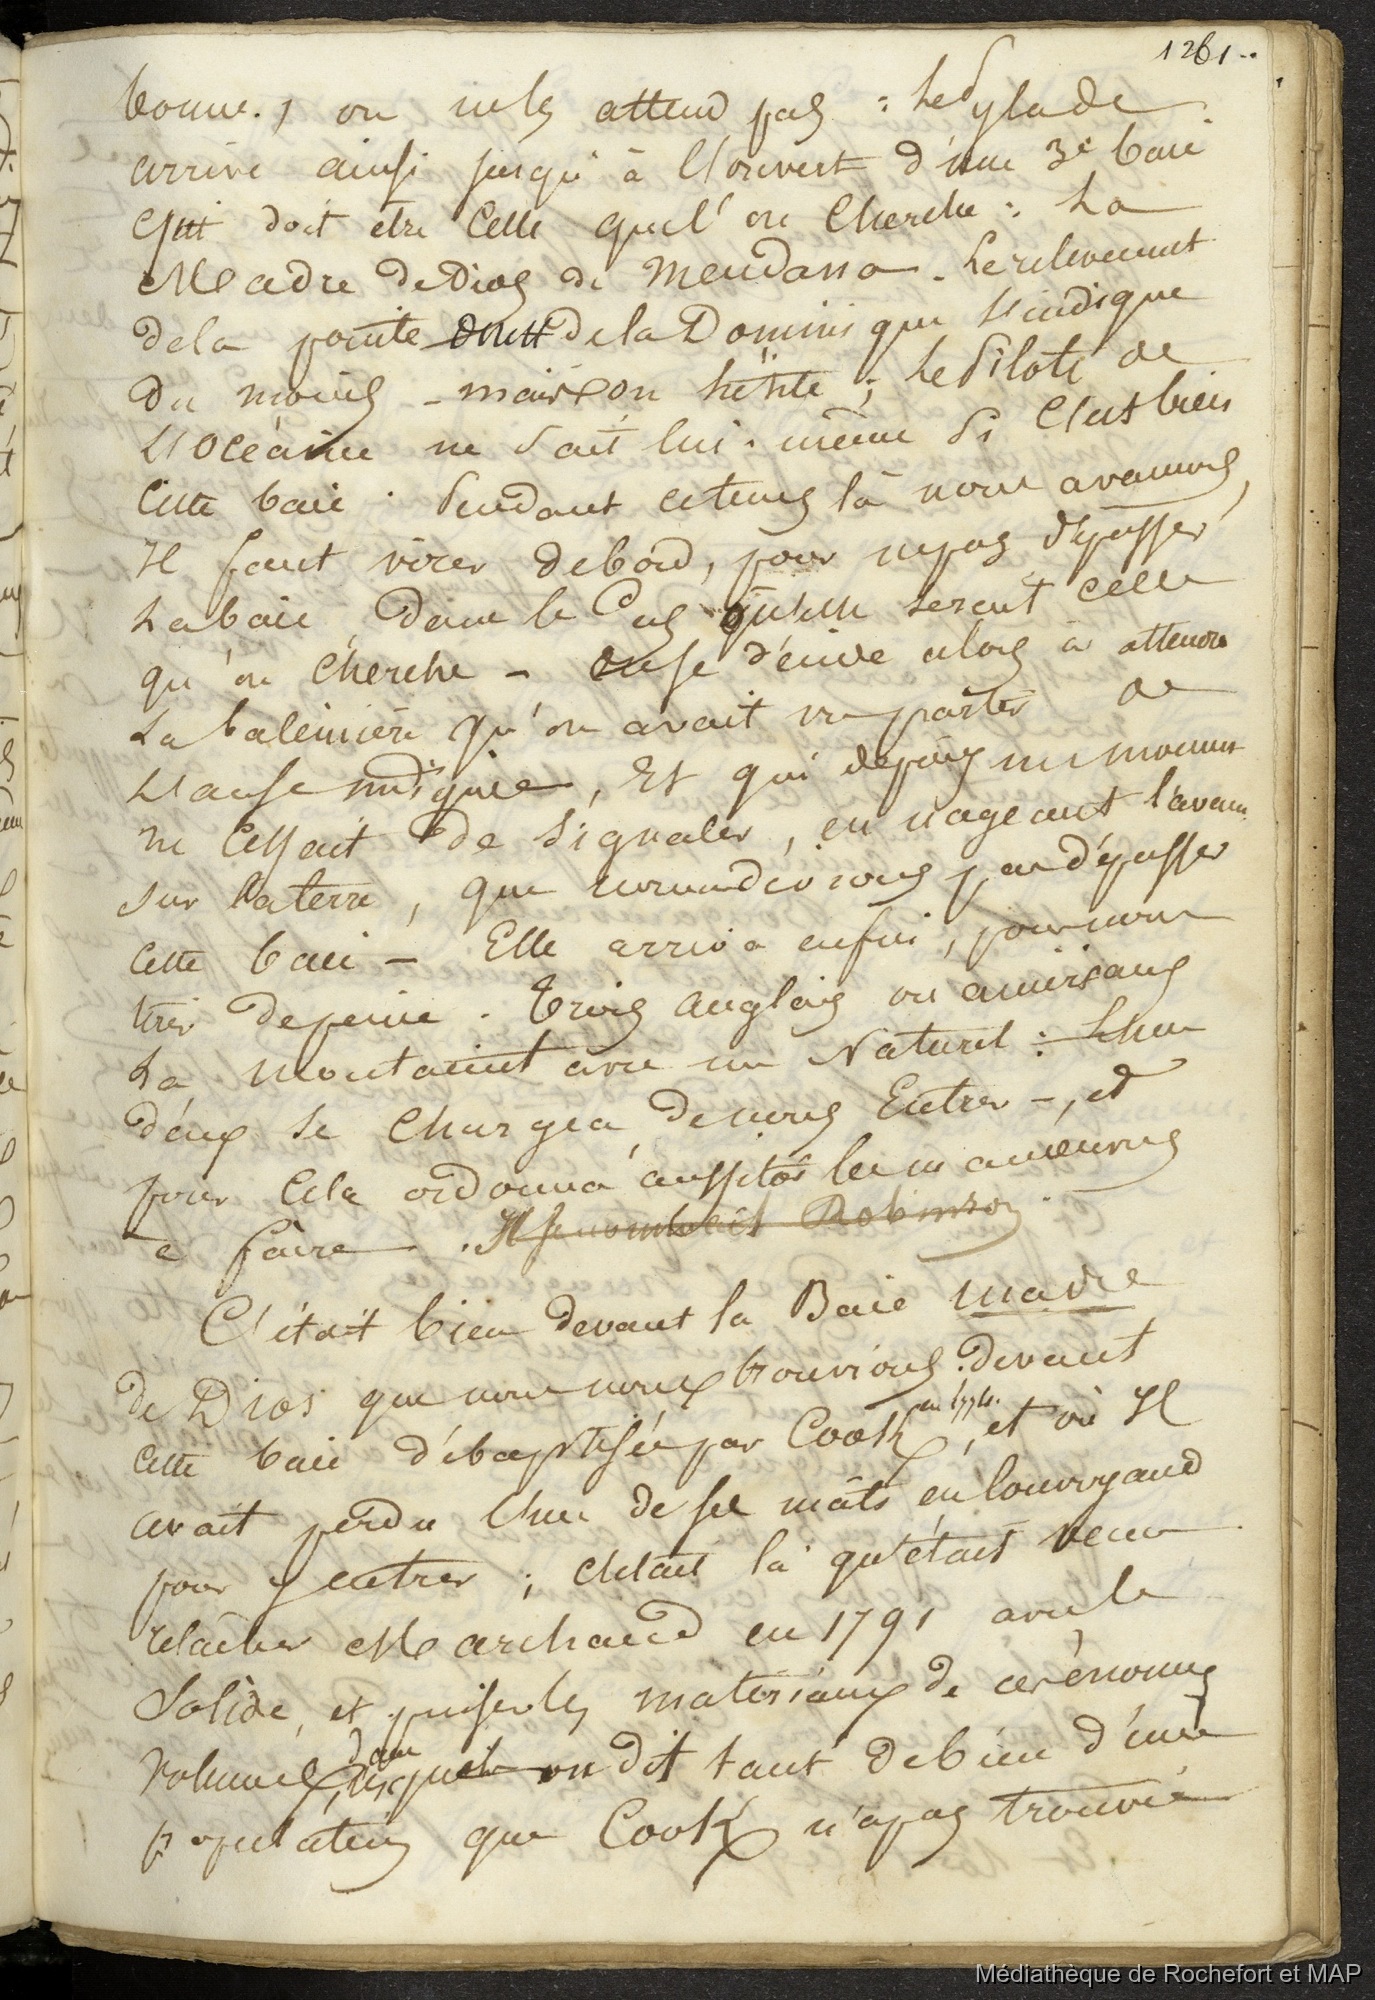 1261..
bonne.) on ne les attend pas : Le Pylade
arrive ainsi jusqu'à l'ouvert d'une 3e baie
qui doit etre celle que l'on cherche : La
Madre de Dios de Mendana. Le relevement
de la pointe de la Dominique l'indique
du moins - mais on hésite ; le Pilote de
l'Océanie ne sait lui-même si c'est bien
cette baie. Pendant ce tems là nous avancions,
Il faut virer de bord, pour ne pas dépasser
La baie, dans le cas qu'elle serait celle
qu'on cherche - on se décide alors à attendre
La baleinière qu'on avait vu partir de
L'anse indiquée, Et qui depuis un moment
ne cessait de signaler, en nageant l'avant
sur la terre, que nous ne devions pas dépasser
cette baie - Elle arriva enfin, pour nous
tirer de peine. Trois anglais ou américains
La montaient avec un Naturel : L'un
d'eux se chargea de nous Entrer -, et
pour cela ordonna aussitôt les manoeuvres
a faire. Il se nombrait Robinson.
C'était bien devant la Baie madre
de Dios que nous nous trouvions. devant
cette baie débaptisée par Cook en 1774., et où Il
avait perdu L'un de ses mâts en louvoyand
pour y entrer ; c'était là qu'était venu
relacher Marchand en 1791 avec le
Solide, et puiser les matériaux de ces énormes
volumes, dans lesquels on dit tant de bien d'une
population que Cook n'a pas trouvée
Médiathèque de Rochefort et MAP